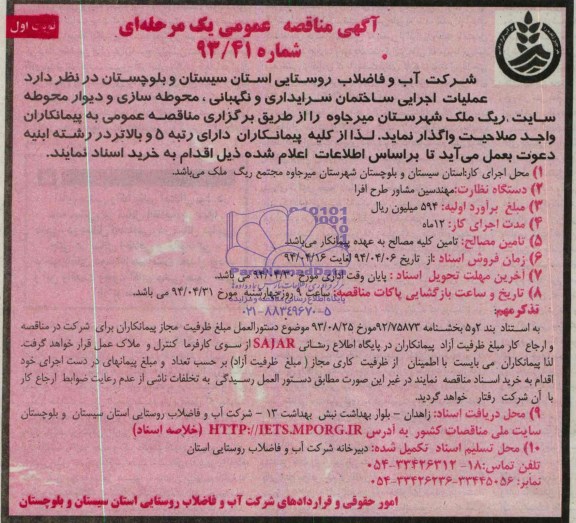 نوبت اول
آگهی مناقصه عمومی یک مرحله‌ای
شماره ۹۳/۴۱
شرکت آب و فاضلاب روستایی استان سیستان و بلوچستان در نظر دارد
عملیات اجرایی ساختمان سرایداری و نگهبانی ، محوطه سازی و دیوار محوطه
سایت ،ریگ ملک شهرستان میرجاوه را از طریق برگزاری مناقصه عمومی به پیمانکاران
واجد صلاحیت واگذار نماید. لذا از کلیه پیمانکاران دارای رتبه ۵ و بالاتر در رشته ابنیه
دعوت بعمل می‌آید تا براساس اطلاعات اعلام شده ذیل اقدام به خرید اسناد نمایند.
۱) محل اجرای کار:استان سیستان و بلوچستان شهرستان میرجاوه مجتمع ریگ ملک می‌باشد.
۲) دستگاه نظارت:مهندسین مشاور طرح افرا
۳) مبلغ برآورد اولیه: ۵۹۴ میلیون ریال
۴) مدت اجرای کار: ۱۲ماه
۵) تامین مصالح: تامین کلیه مصالح به عهده پیمانکار می‌باشد.
۶) زمان فروش اسناد :از تاریخ ۹۴/۰۴/۰۶ لغایت ۹۴/۰۴/۱۶
۷) آخرین مهلت تحویل اسناد : پایان وقت اداری مورخ ۹۴/۰۴/۳۰ می باشد.
۸) تاریخ و ساعت بازگشایی پاکات مناقصه: ساعت ۹ روزچهارشنبه مورخ ۹۴/۰۴/۳۱ می باشد.
تذکرمهم:
به استناد بند ۲و۵ بخشنامه ۹۲/۷۵۸۷۳مورخ ۹۳/۰۸/۲۵ موضوع دستورالعمل مبلغ ظرفیت مجاز پیمانکاران برای شرکت در مناقصه
و ارجاع کار مبلغ ظرفیت آزاد پیمانکاران در پایگاه اطلاع رسانی SAJAR از سوی کارفرما کنترل و ملاک عمل قرار خواهد گرفت.
لذا پیمانکاران می بایست با اطمینان از ظرفیت کاری مجاز ( مبلغ ظرفیت آزاد) بر حسب تعداد و مبلغ پیمانهای در دست اجرای خود
اقدام به خرید اسناد مناقصه نمایند در غیر این صورت مطابق دستور العمل رسیدگی به تخلفات ناشی از عدم رعایت ضوابط ارجاع کار
با آن شرکت رفتار خواهد گردید.
۹) محل دریافت اسناد: زاهدان - بلوار بهداشت نبش بهداشت ۱۳ - شرکت آب و فاضلاب روستایی استان سیستان و بلوچستان
سایت ملی مناقصات کشور به آدرس HTTP://IETS.MPORG.IR (خلاصه اسناد)
۱۰) محل تسلیم اسناد تکمیل شده: دبیرخانه شرکت آب و فاضلاب روستایی استان
تلفن تماس: ۱۸-۰۵۴-۳۳۴۲۶۳۱۲
نمابر: ۳۳۴۴۵۰۵۶-۰۵۴-۳۳۴۲۶۲۳۶
امور حقوقی و قراردادهای شرکت آب و فاضلاب روستایی استان سیستان و بلوچستان
ParsNamadData
پایگاه اطلاع رسانی مناقصه و مزایده
۰۲۱-۸۸۳۴۹۶۷۰-۵